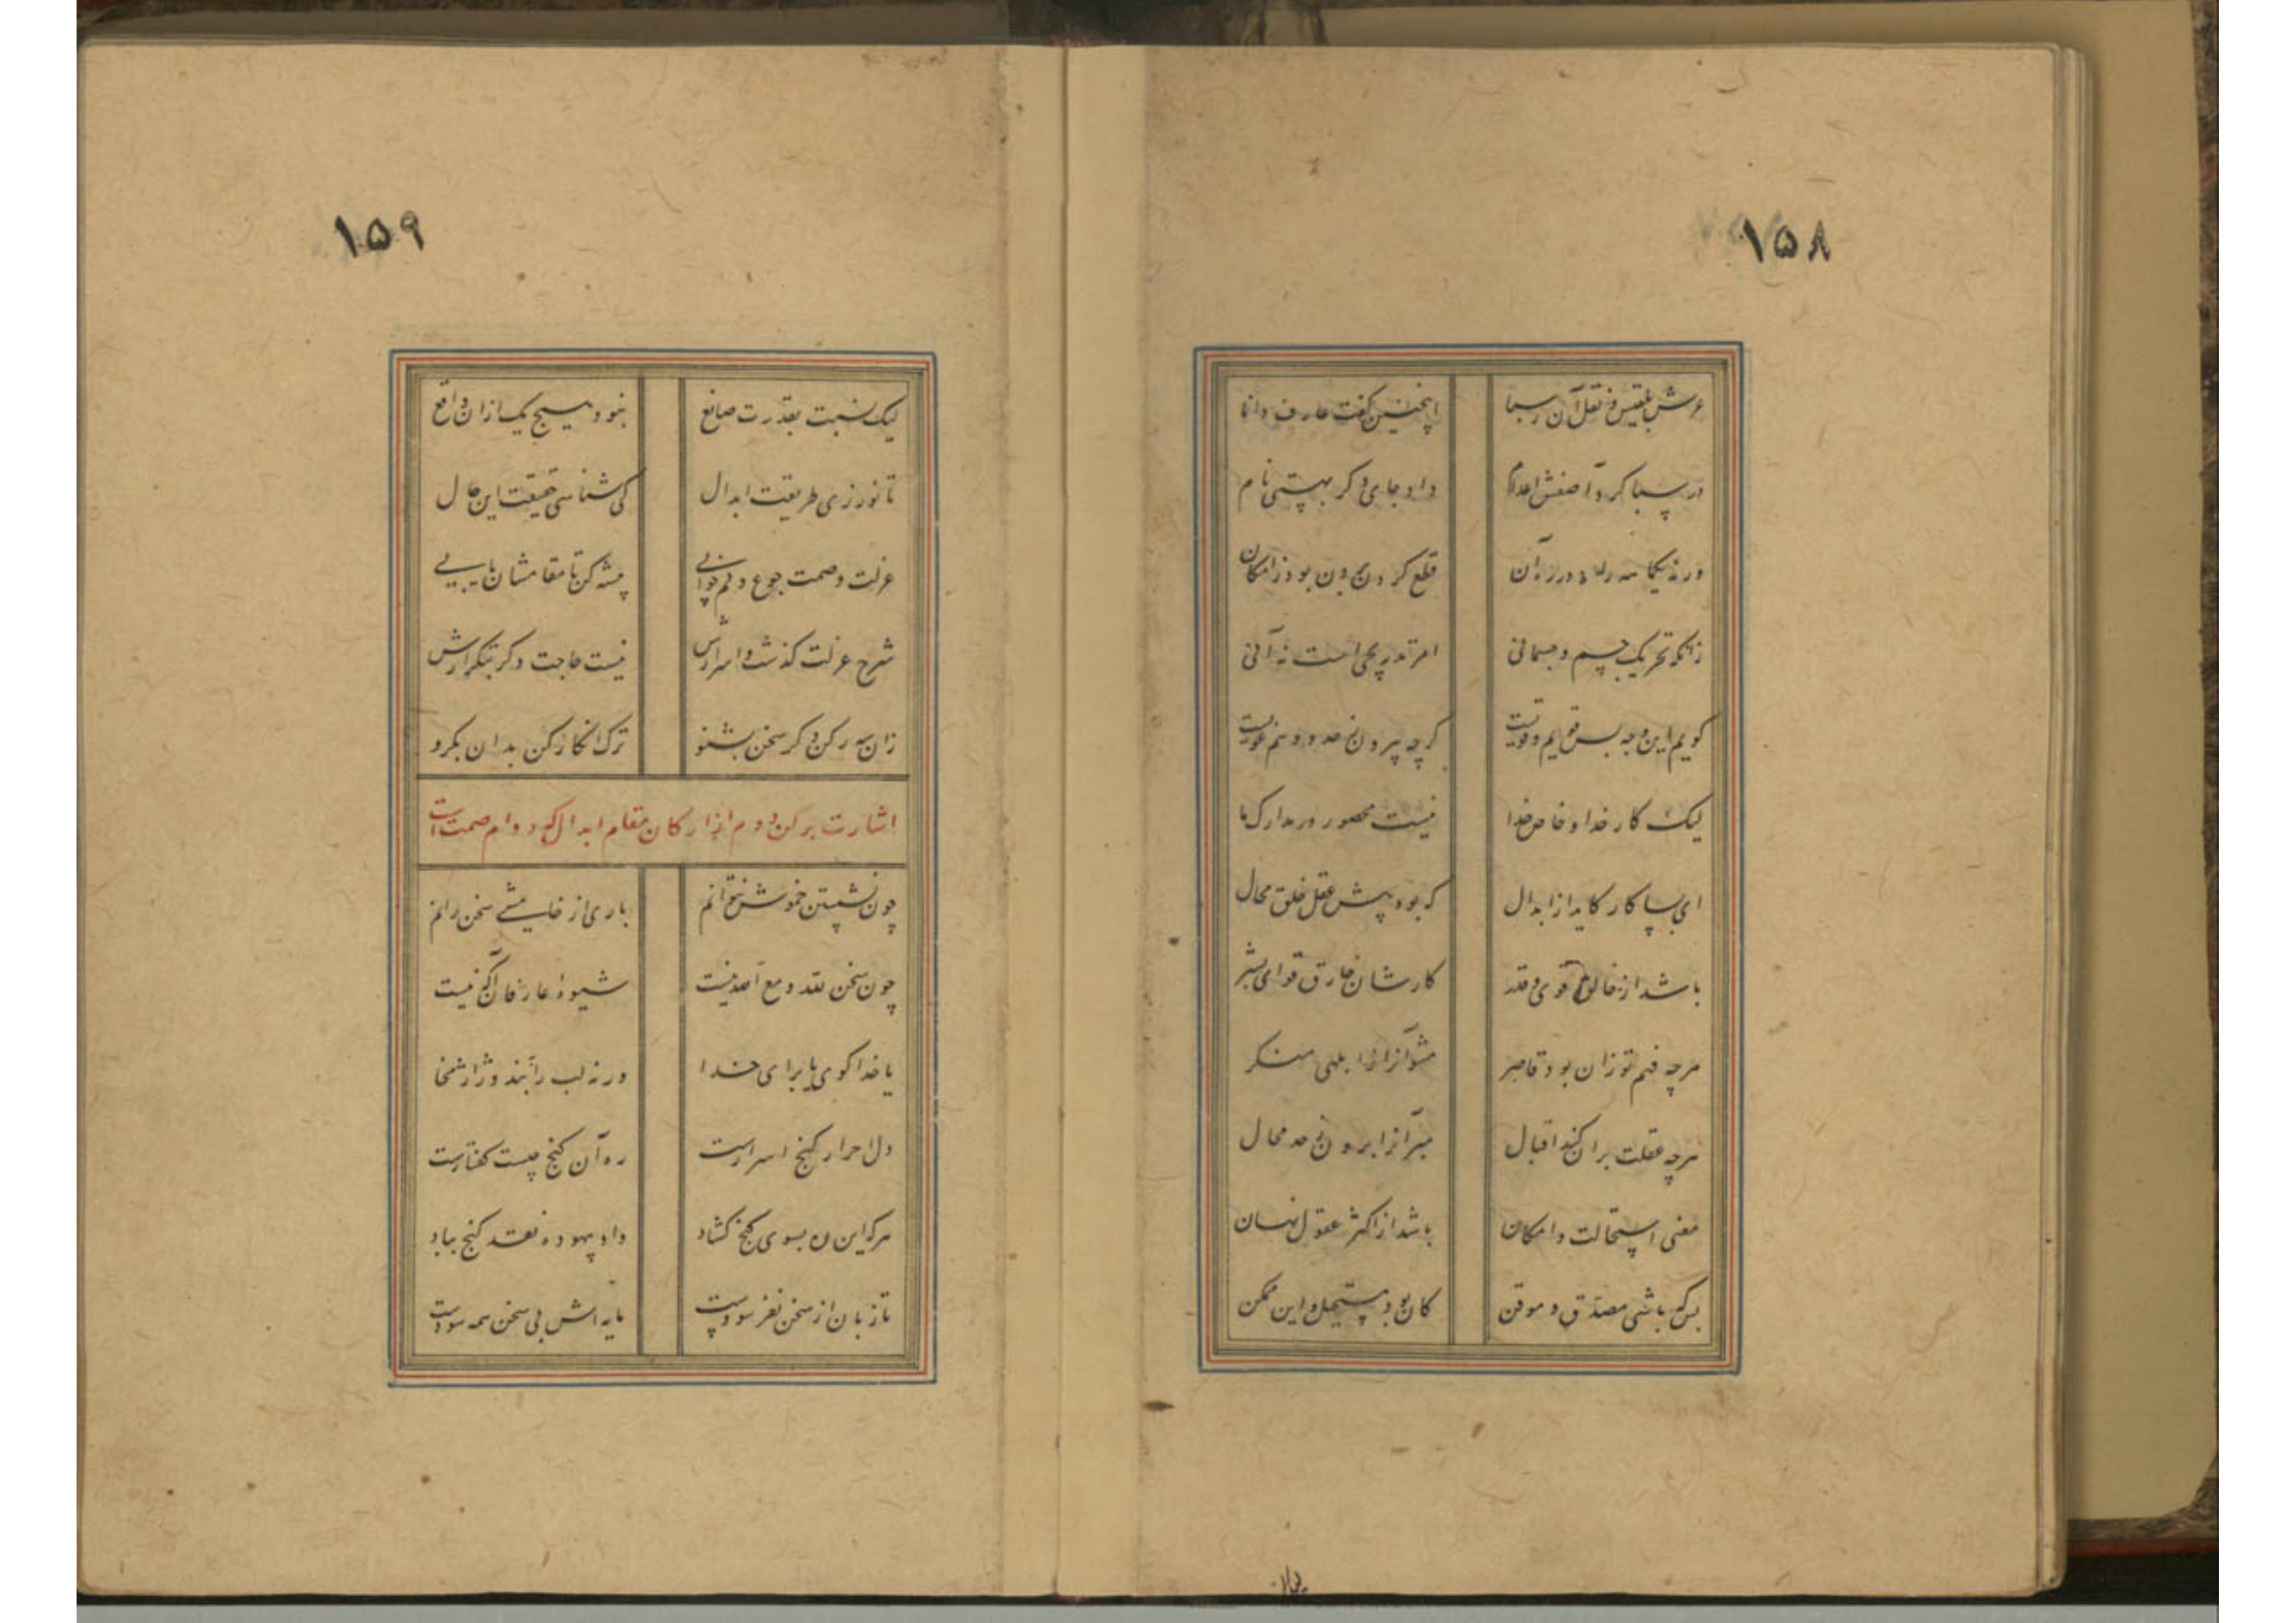 ۱۵۸
عرش بلقیس و نقل آن ز سبا
اینچنین گفت عارف دانا
در سبا کرد آصفش اعدام
داد جای دکر بهستی نام
ورنه یکماهه راه در زمان
قطع کردن برون بود ز امکان
زانکه تحریک جسم و جسمانی
امر تدریجی است نه آنی
کویم این وجه بس قویم و قویست
کرچه بیرون ز حد
لیک کار خدا و خاص خدا
نیست محصور در مدارک ما
ای بسا کار کاید از ابدال
که بود پیش عقل خلق محال
باشد از خالق قوی و قدر
کارشان خارق قوای بشر
هرچه فهم تو زان بود قاصر
مشو آنرا ز ابلهی منکر
هرچه عقلت بر آن کند اقبال
مبر آنرا برون ز حد محال
معنی استحالت و امکان
باشد از اکثر عقول نهان
بس که باشی مصدق و موقن
کان بود مستحیل و این ممکن
۱۵۹
لیک نسبت بقدرت صانع
نبود هیچ یک ازان واقع
تا نورزی طریقت ابدال
کی شناسی حقیقت این حال
عزلت و صمت و جوع و کم خوابی
پیشه کن تا مقامشان یابی
شرح عزلت کذشت و اسرارش
نیست حاجت دکر بتکرارش
زان سه رکن دکر سخن بشنو
ترک انکار کن بدان بکرو
اشارت برکن دوم از ارکان مقام ابدال که دوام صمت است
چون نشستن خموش نتوانم
باری از خامشی سخن رانم
چون سخن نقد و مع آمد نیست
شیوهٔ عارفان آکه نیست
یا خدا کوی یا برای خدا
ورنه لب را ببند و ژاژ مخا
دل احرار کنج اسرارست
ره آن کنج چیست کفتارست
هرکه این ره بسوی کنج کشاد
داد بیهوده نقد کنج بباد
تا زبان از سخن نفرسودست
مایه اش بی سخن همه سودست